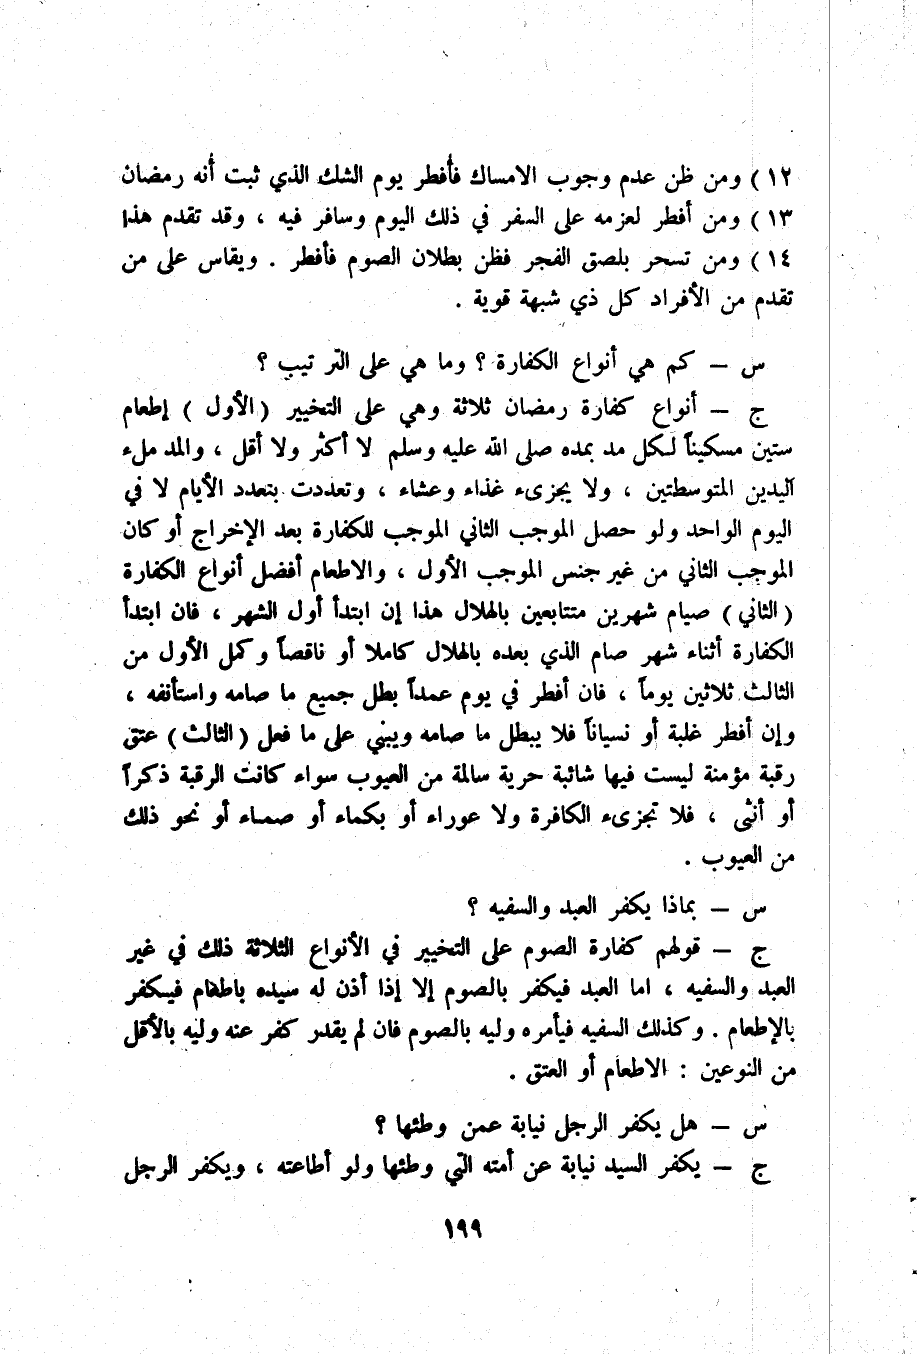 ١٢) ومن ظن عدم وجوب الامساك فأفطر يوم الشك الذي ثبت أنه رمضان
١٣) ومن أفطر لعزمه على السفر في ذلك اليوم وسافر فيه ، وقد تقدم هذا
١٤) ومن تسحر بلصق الفجر فظن بطلان الصوم فأفطر . ويقاس على من
تقدم من الأفراد كل ذي شبهة قوية .
س – كم هي أنواع الكفارة ؟ وما هي على الترتيب ؟
ج – أنواع كفارة رمضان ثلاثة وهي على التخيير (الأول ) إطعام
ستين مسكيناً لكل مد بمده صلى الله عليه وسلم لا أكثر ولا أقل ، والمد ملء
اليدين المتوسطتين ، ولا يجزىء غذاء وعشاء ، وتعددت بتعدد الأيام لا في
اليوم الواحد ولو حصل الموجب الثاني الموجب للكفارة بعد الإخراج أو كان
الموجب الثاني من غير جنس الموجب الأول ، والاطعام أفضل أنواع الكفارة
(الثاني ) صيام شهرين متتابعين بالهلال هذا إن ابتدأ أول الشهر ، فان ابتدأ
الكفارة أثناء شهر صام الذي بعده بالهلال كاملا أو ناقصاً وكمل الأول من
الثالث ثلاثين يوماً ، فان أفطر في يوم عمداً بطل جميع ما صامه واستأنفه ،
وإن أفطر غلبة أو نسياناً فلا يبطل ما صامه ويبني على ما فعل (الثالث ) عتق
رقبة مؤمنة ليست فيها شائبة حرية سالمة من العيوب سواء كانت الرقبة ذكراً
أو أنثى ، فلا تجزىء الكافرة ولا عوراء أو بكماء أو صماء أو نحو ذلك
من العيوب .
س – بماذا يكفر العبد والسفيه ؟
ج – قولهم كفارة الصوم على التخيير في الأنواع الثلاثة ذلك في غير
العبد والسفيه ، اما العبد فيكفر بالصوم إلا إذا أذن له سيده باطعام فيكفر
بالإطعام . وكذلك السفيه فيأمره وليه بالصوم فان لم يقدر كفر عنه وليه بالأقل
من النوعين : الاطعام أو العتق .
س – هل يكفر الرجل نيابة عمن وطئها ؟
ج – يكفر السيد نيابة عن أمته التي وطئها ولو أطاعته ، ويكفر الرجل
١٩٩